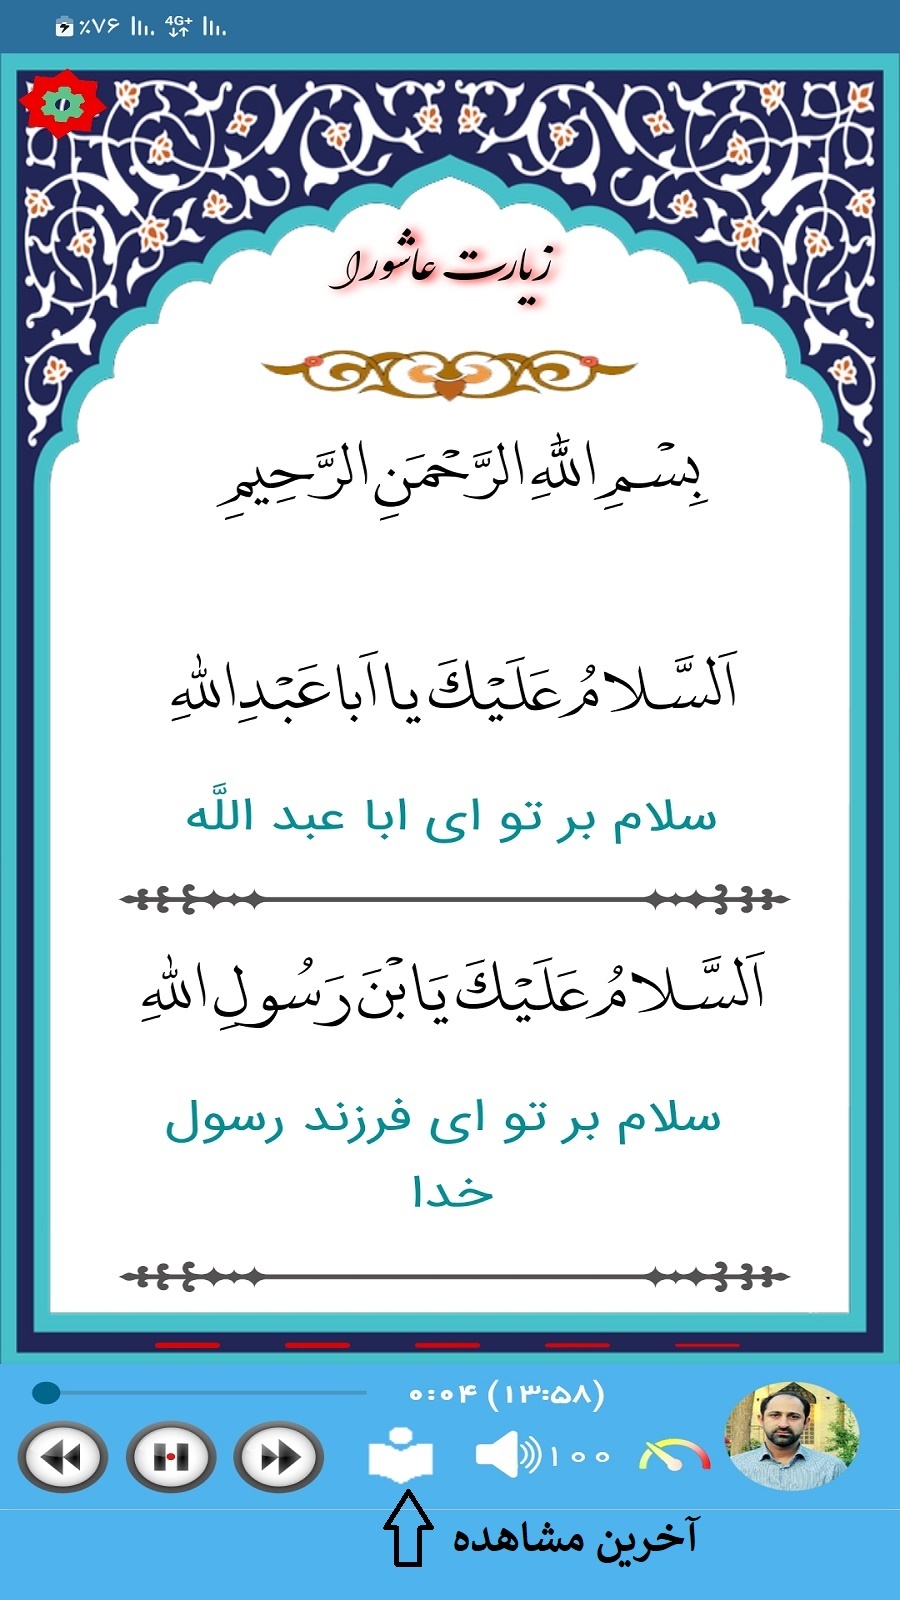 ٪۷۶ 4G+
زیارت عاشورا
بِسْمِ اللّٰهِ الرَّحْمَنِ الرَّحِيمِ
اَلسَّلامُ عَلَيْكَ يا اَبا عَبْدِاللّٰهِ
سلام بر تو ای ابا عبد اللَّه
اَلسَّلامُ عَلَيْكَ يَابْنَ رَسُولِ اللّٰهِ
سلام بر تو ای فرزند رسول
خدا
۰:۰۴ (۱۳:۵۸)
۱۰۰
آخرین مشاهده